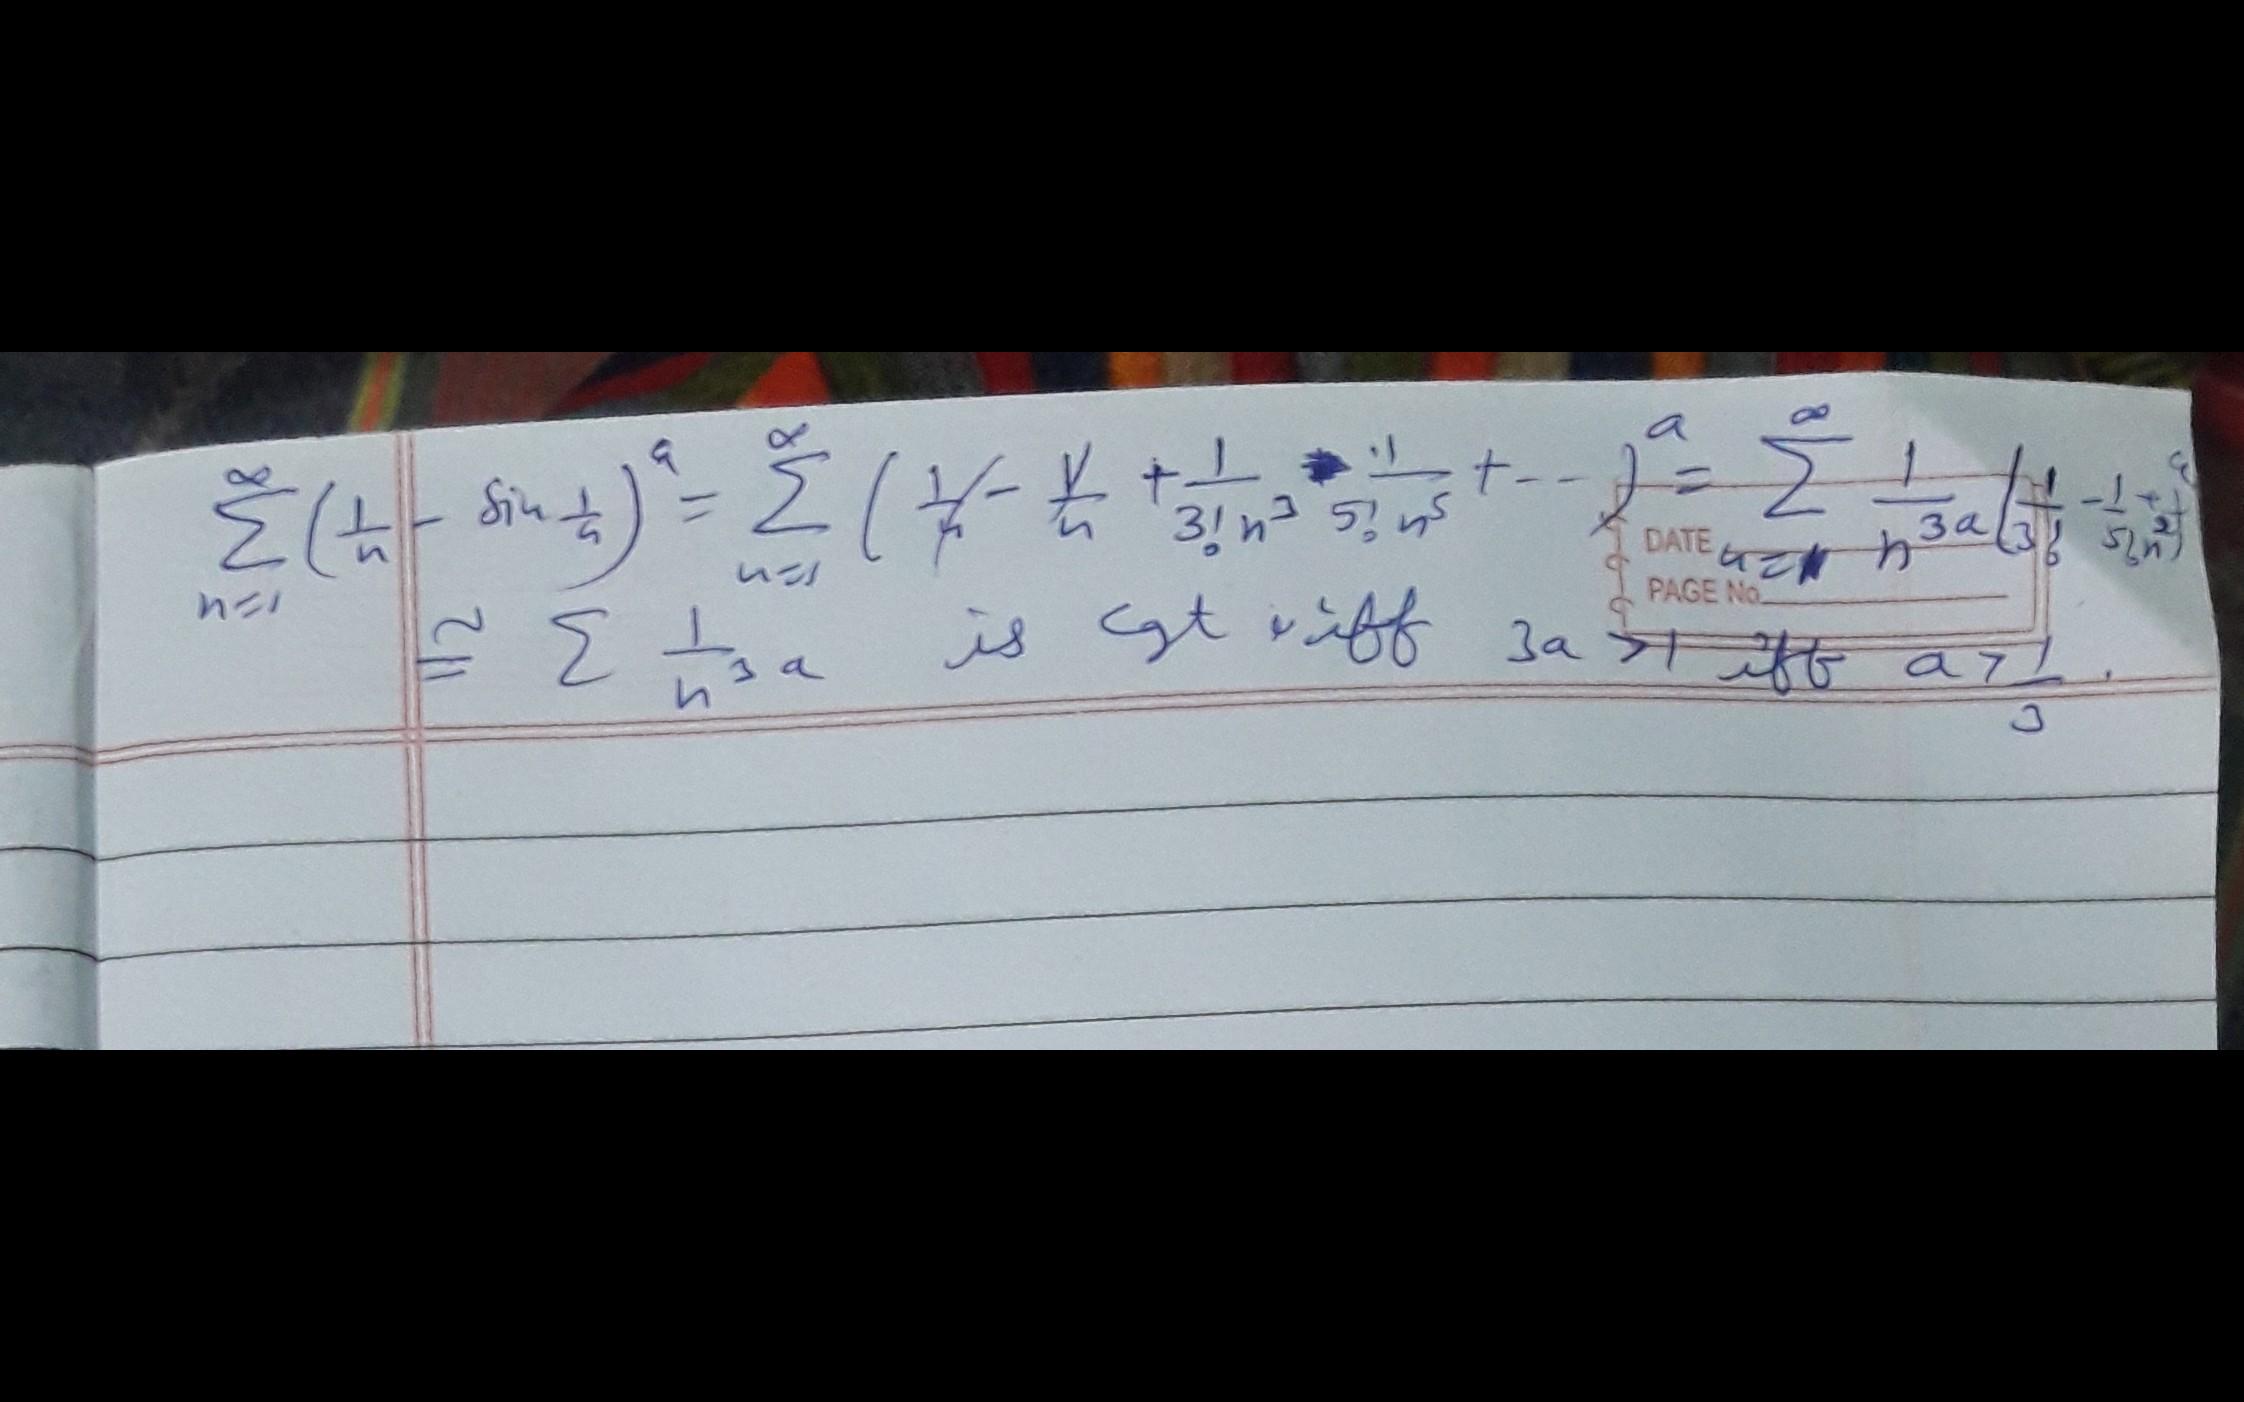 ∞∑n=1 (1/n - sin 1/n)^a = ∞∑n=1 (1/n - 1/n + 1/3!n^3 - 1/5!n^5 + ---)^a = ∞∑n=1 1/n^3a (1/3! - 1/5!n^2 + )^a
DATE
PAGE No.
≅ ∑ 1/n^3a is cgt iff 3a > 1 iff a > 1/3.